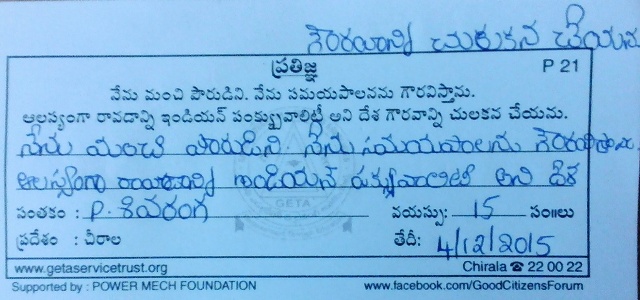 గౌరవాన్ని చులకన చేయను
ప్రతిజ్ఞ P 21
నేను మంచి పౌరుడిని. నేను సమయపాలనను గౌరవిస్తాను.
ఆలస్యంగా రావడాన్ని ఇండియన్ పంక్చువాలిటీ అని దేశ గౌరవాన్ని చులకన చేయను.
నేను మంచి పౌరుడిని నేను సమయపాలను గౌరవిస్తాను.
ఆలస్యంగా రావడాన్ని ఇండియన్ పంక్చువాలిటీ అని దేశ
GETA
సంతకం : P. శివరంగ వయస్సు: 15 సం॥లు
ప్రదేశం : చీరాల తేదీ: 4/12/2015
www.getaservicetrust.org Chirala ☎ 22 00 22
Supported by : POWER MECH FOUNDATION www.facebook.com/GoodCitizensForum